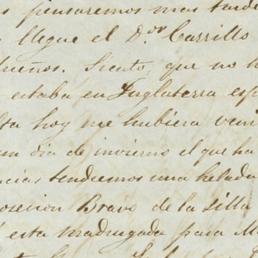 pensaremos mas tarde
llegue el Dor Carrillo
dueños. Siento, que no h
estaba en Inglaterra esp
ta hoy me hubiera veni
un dia de invierno el que ha
cias tendremos una helada
posecion Bravo de la Silla
esta madrugada para M